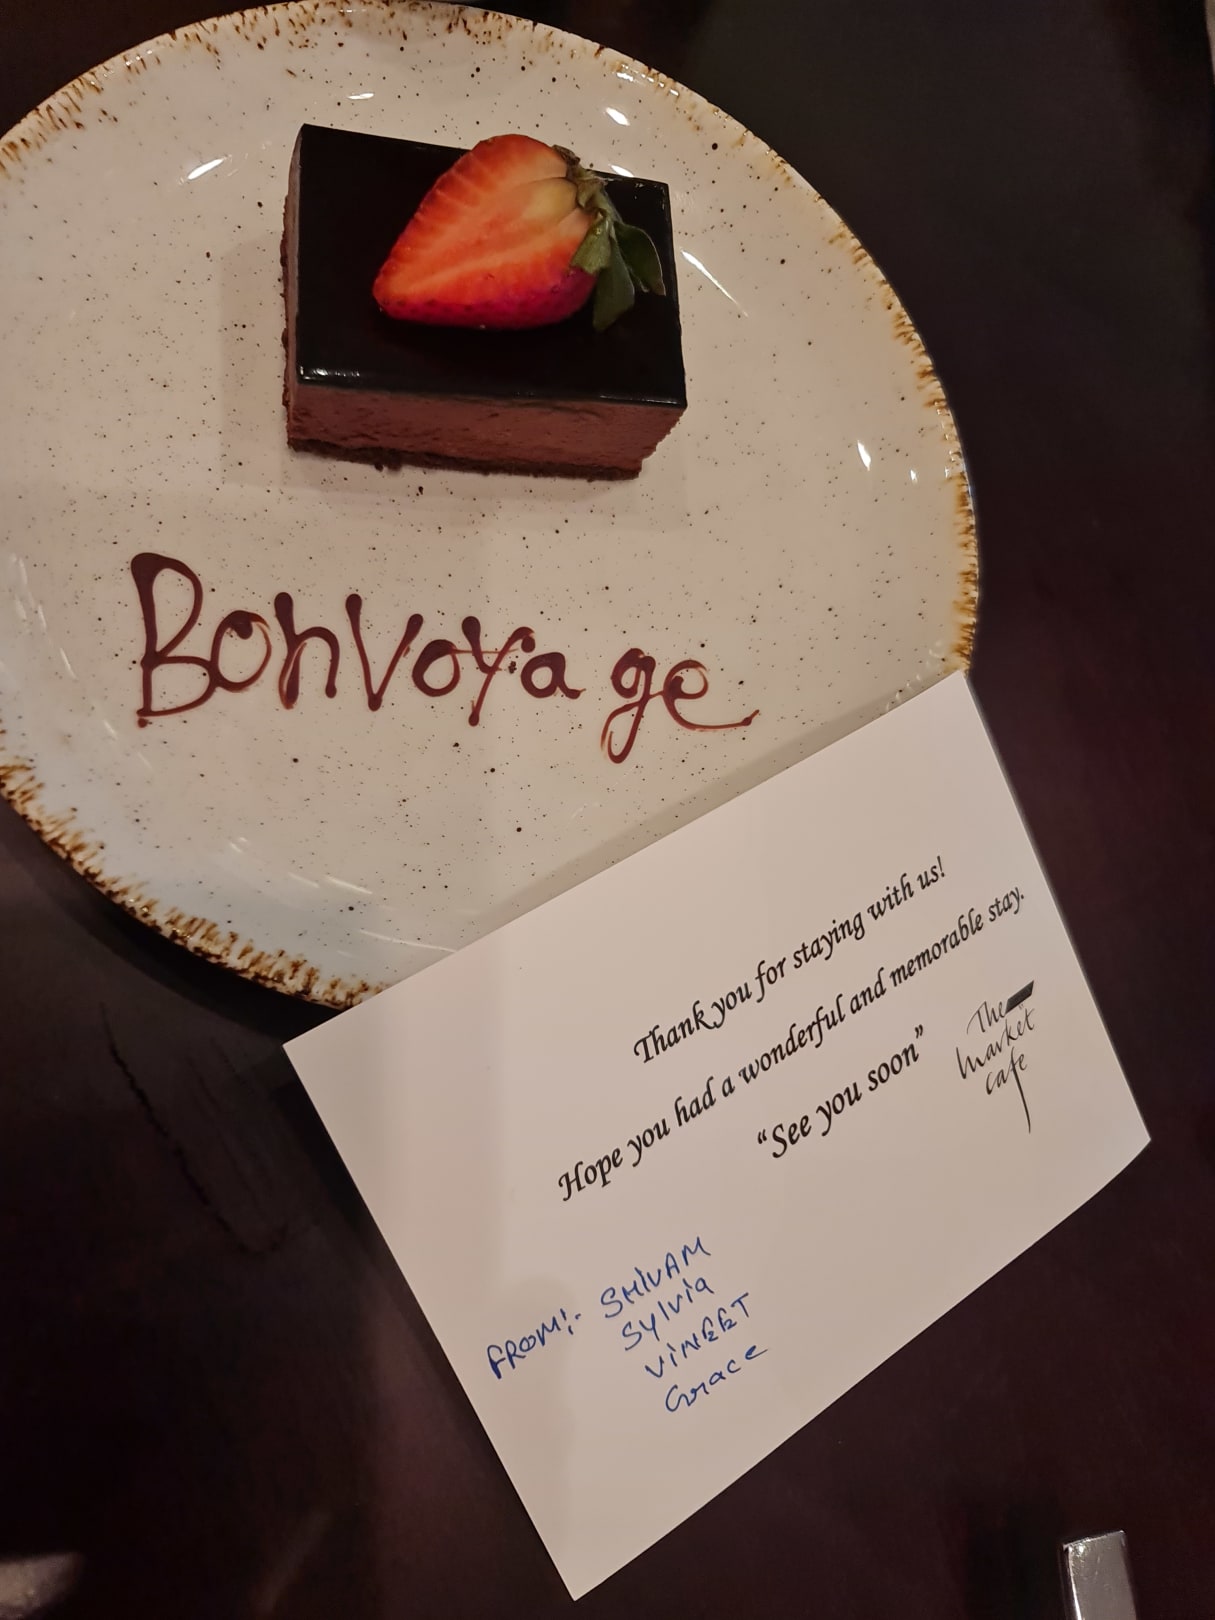 BonVoyage
Thank you for staying with us!
Hope you had a wonderful and memorable stay.
“See you soon”
The
market
cafe
FROM:- SHIVAM
Sylvia
VINEET
Grace